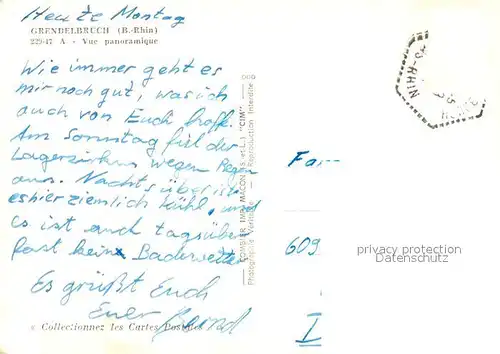 Heute Montag
GRENDELBRUCH (B.-Rhin)
229-17 A - Vue panoramique
Wie immer geht es
mir noch gut, was ich
auch von Euch hoffe.
Am Sonntag fiel der
Lagerzirkus wegen Regen
aus. Nachts über ist
es hier ziemlich kühl, und
es ist auch tagsüber
fast kein Badewetter
Es grüßt Euch
Euer Bernd
« Collectionnez les Cartes Postales
COMBIER IMP. MACON (S.-et-L.) "CIM"
Photographie Véritable - Reproduction Interdite
S-RHIN
Fam
609
I
privacy protection